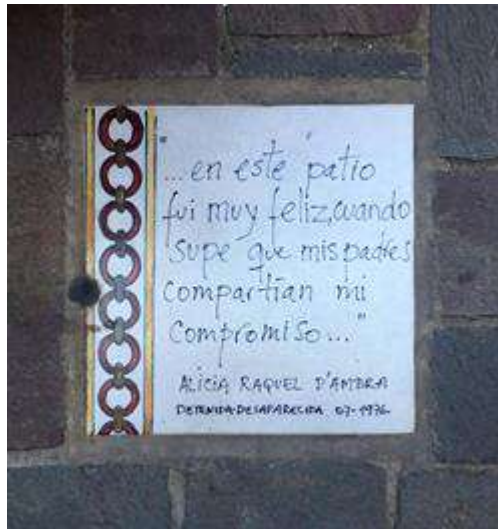 "...en este patio
fui muy feliz, cuando
supe que mis padres
compartían mi
compromiso..."
ALICIA RAQUEL D'AMBRA
DETENIDA-DESAPARECIDA 07-1976